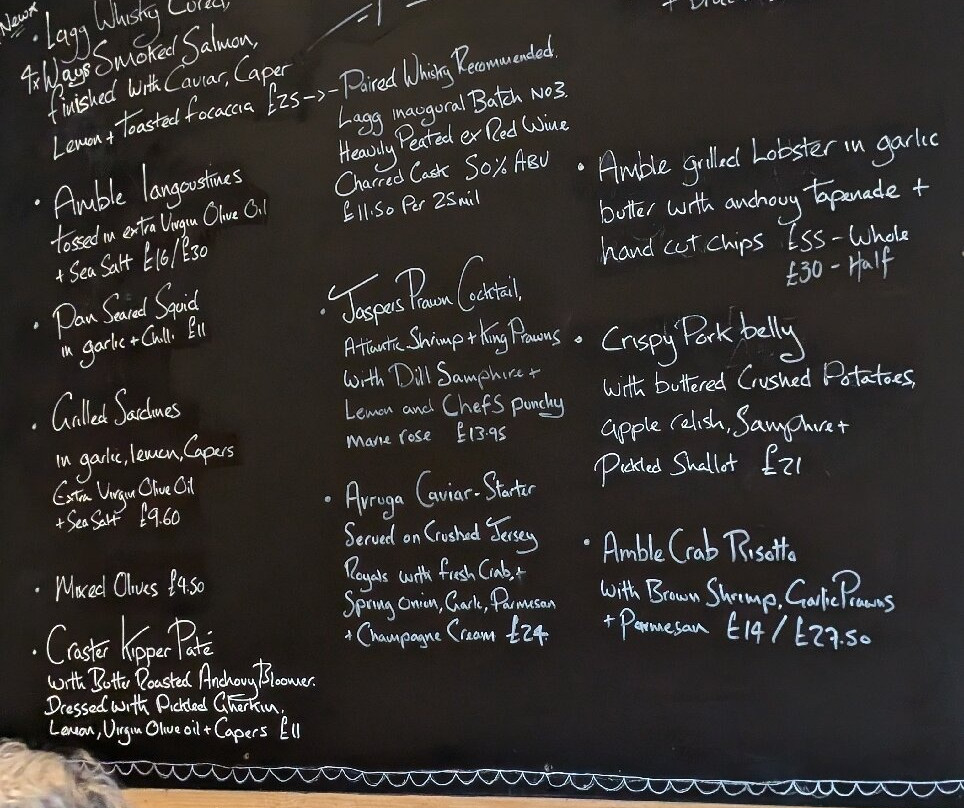 New*
• Lagg Whisky Cured,
4x Ways Smoked Salmon,
finished with Caviar, Caper
Lemon + Toasted focaccia £25 ->-
• Amble langoustines
tossed in extra Virgin Olive Oil
+ Sea Salt £16/£30
• Pan Seared Squid
in garlic + Chilli £11
• Grilled Sardines
in garlic, lemon, Capers
Extra Virgin Olive Oil
+ Sea Salt £9.60
• Mixed Olives £4.50
• Craster Kipper Paté
with Butter Roasted Anchovy Bloomer.
Dressed with Pickled Gherkin,
Lemon, Virgin Olive oil + Capers £11
Paired Whisky Recommended.
Lagg inaugural Batch No3.
Heavily Peated ex Red Wine
Charred Cask 50% ABV
£11.50 Per 25mil
• Jaspers Prawn Cocktail,
Atlantic Shrimp + King Prawns
with Dill Samphire +
Lemon and Chefs punchy
marie rose £13.95
• Avruga Caviar - Starter
Served on Crushed Jersey
Royals with fresh Crab, +
Spring Onion, Garlic, Parmesan
+ Champagne Cream £24
• Amble grilled Lobster in garlic
butter with anchovy Tapenade +
hand cut chips £55 - Whole
£30 - Half
• Crispy Pork belly
with buttered Crushed Potatoes,
apple relish, Samphire +
Pickled Shallot £21
• Amble Crab Risotto
with Brown Shrimp, Garlic Prawns
+ Parmesan £14 / £27.50